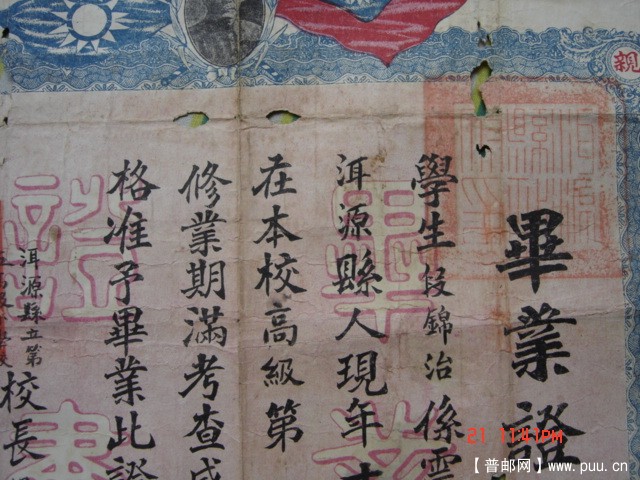 親
畢業證
學生段錦治係雲
洱源縣人現年十
在本校高級第
修業期滿考查成
格准予畢業此證
洱源縣立第
校長
21 11:41PM
【普邮网】www.puu.cn